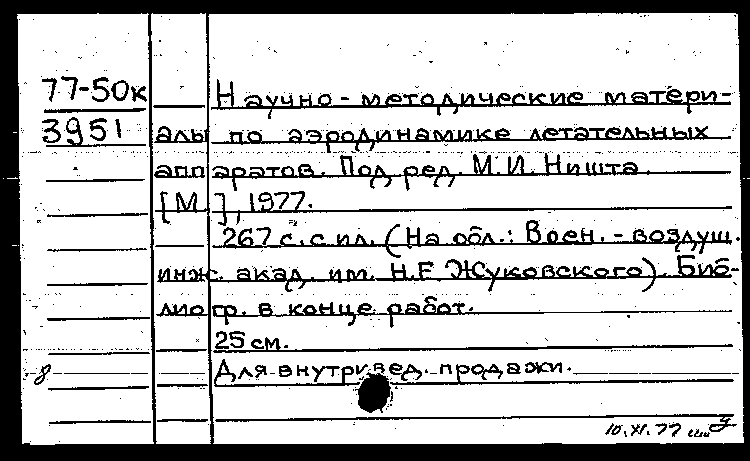 77-50к Научно-методические матери-
3951 алы по аэродинамике летательных
аппаратов. Под ред. М.И. Ништа.
[М.], 1977.
267 с. с ил. (На обл.: Воен.-воздуш.
инж. акад. им. Н.Е. Жуковского). Биб-
лиогр. в конце работ.
25 см.
Для внутривед. продажи.
8
10.XI.77